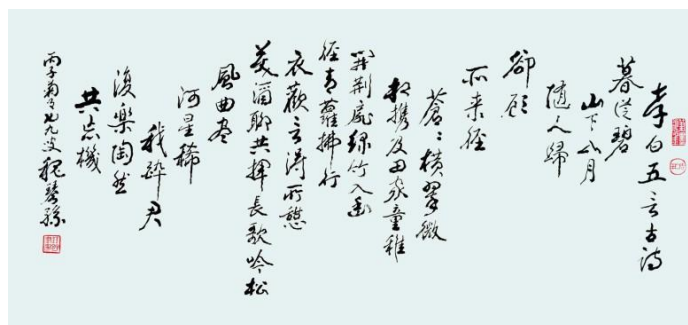 李白五言古詩
暮從碧
山下山月
隨人歸
卻顧
所来徑
蒼々橫翠微
相攜及田家童稚
開荆扉綠竹入幽
徑青蘿拂行
衣歡言得所憩
美酒聊共揮長歌吟松
風曲盡
河星稀
我醉君
復樂陶然
共忘機
丙子菊月七九叟